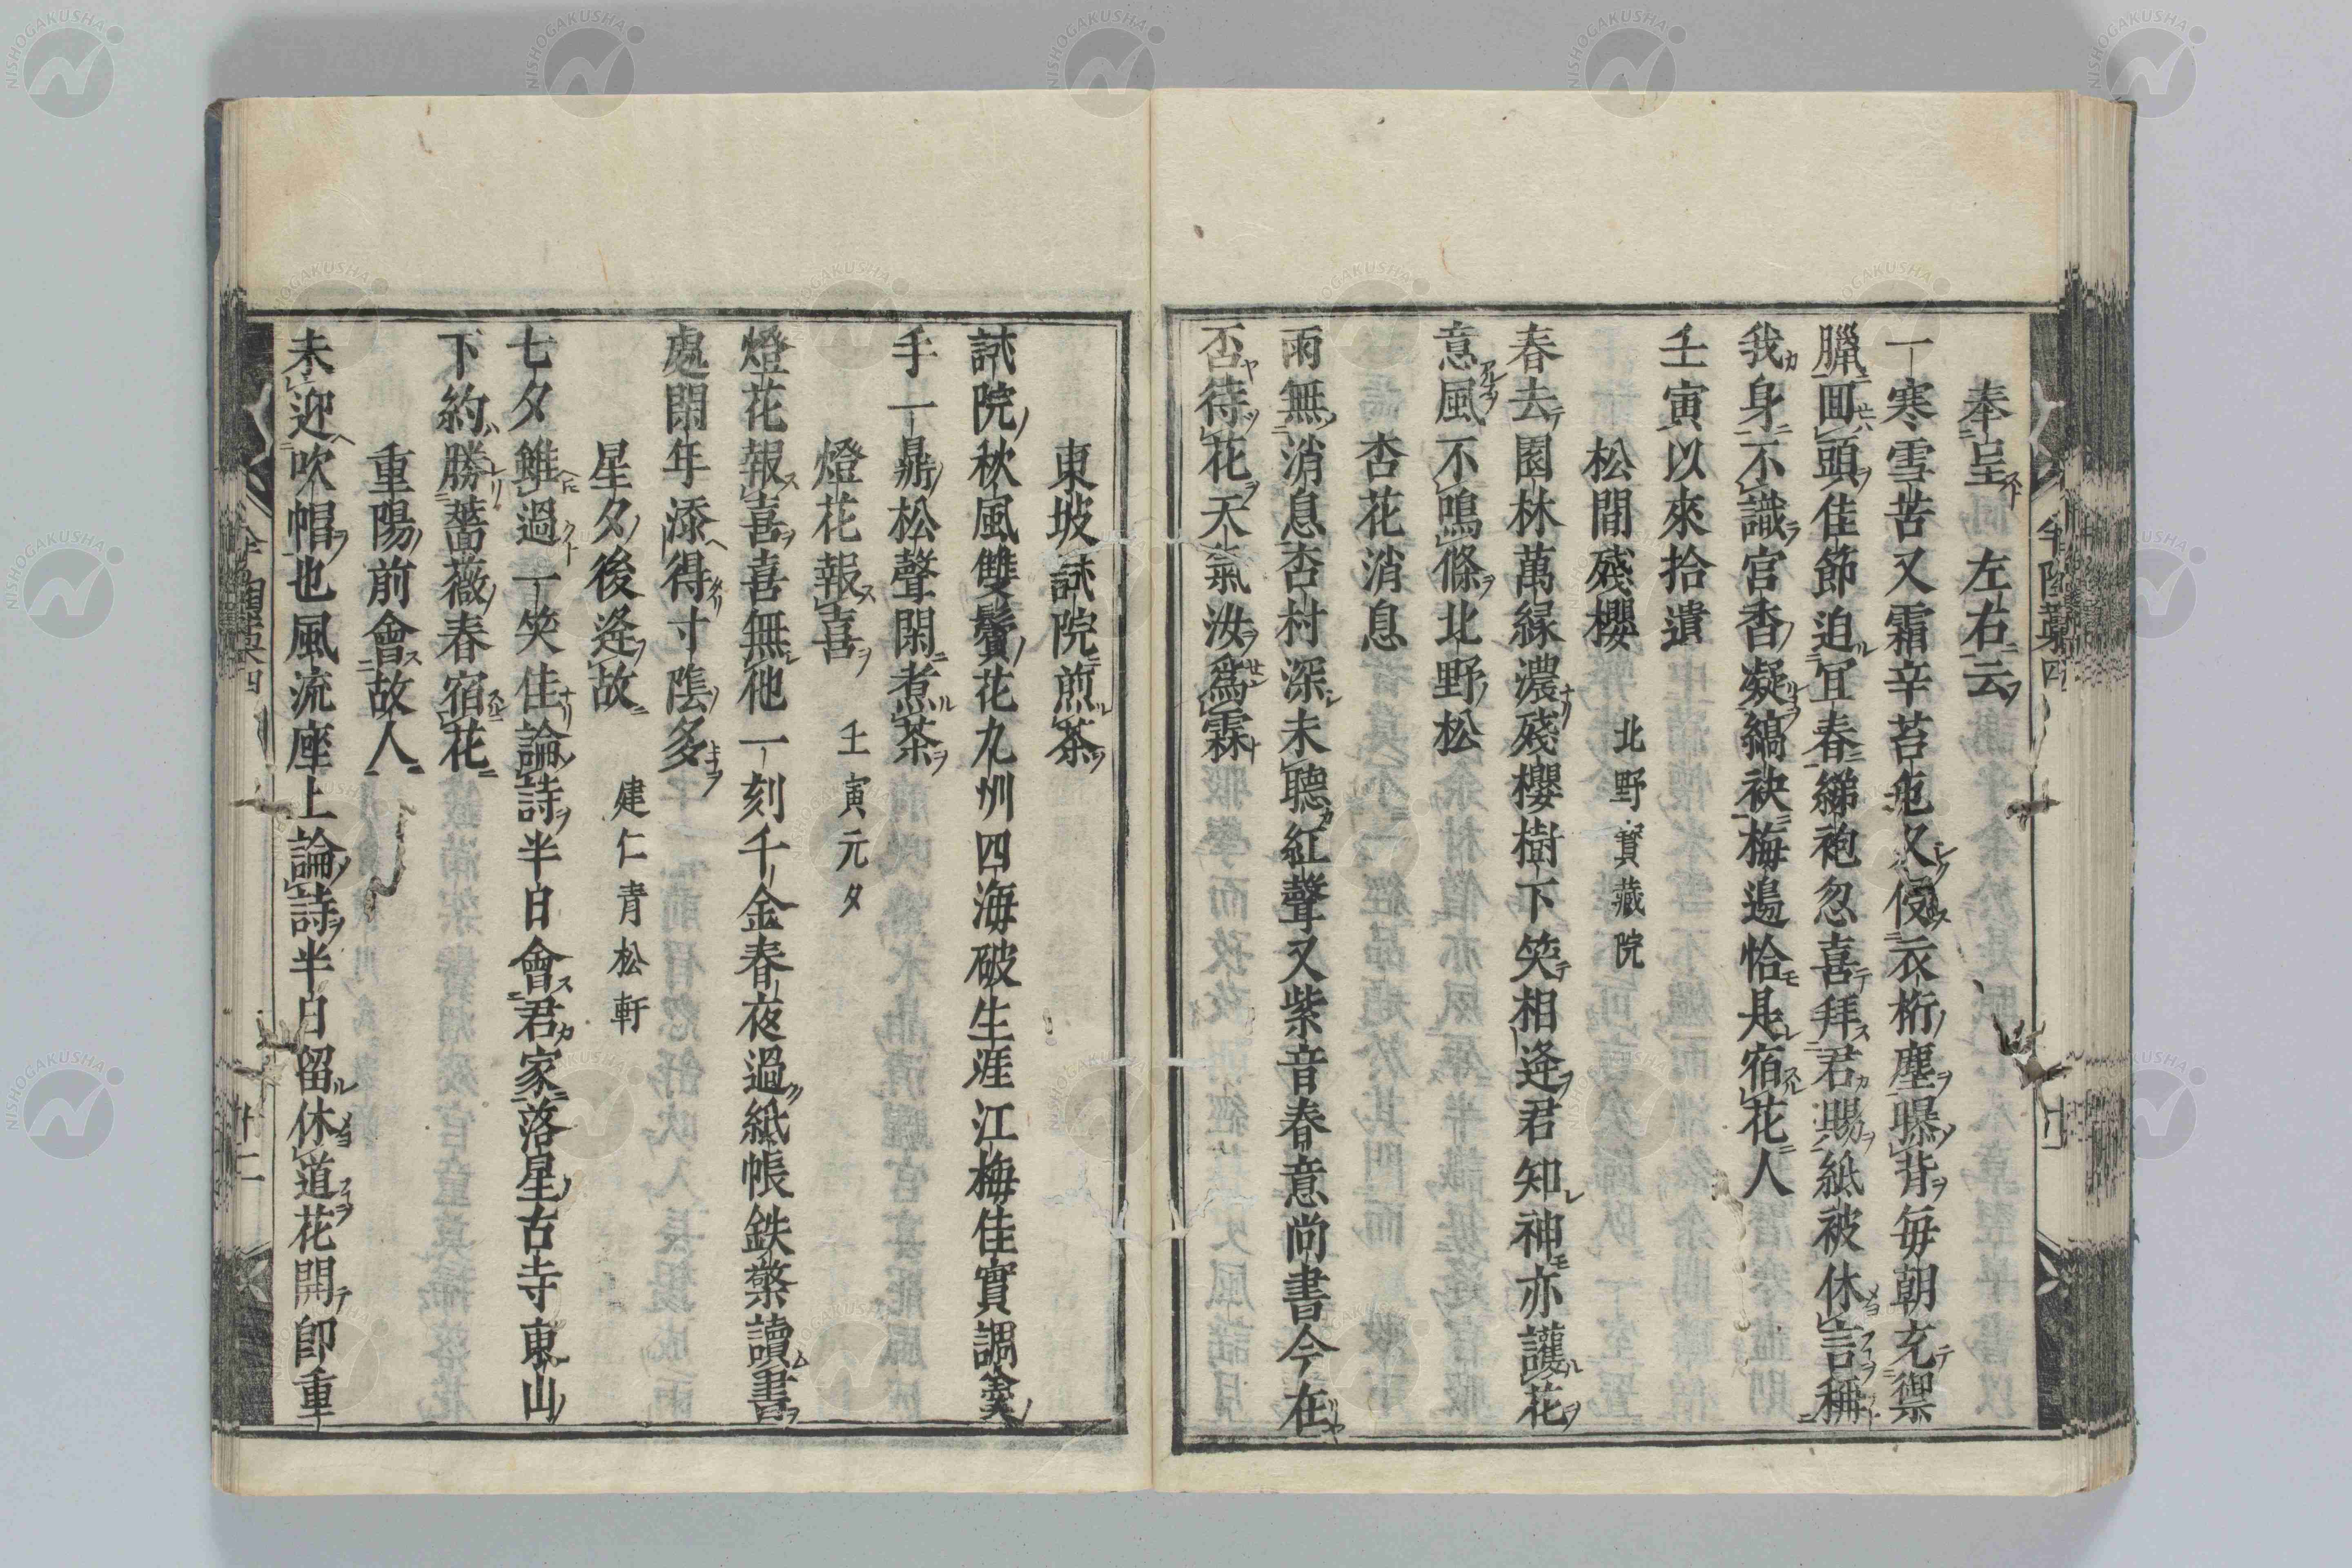 奉呈 左右云
一寒雪苦又霜辛苔疱又侵衣桁塵曝背毎朝充禦
臘囬頭佳節迫冝春綈袍忽喜拜君賜紙被休言稱
我身不識官香凝縞袂梅邉恰是宿花人
壬寅以來拾遺
松間殘櫻 北野寳藏院
春去園林萬緑濃殘櫻樹下笑相逢君知神亦護花
意風不鳴條北野松
杏花消息
雨無消息杏村深未聽紅聲又紫音春意尚書今在
否待花天氣汝爲霖
東坡試院煎茶
試院秋風雙鬢花九州四海破生涯江梅佳實調羹
手一鼎松聲閑煮茶
燈花報喜 壬寅元夕
燈花報喜喜無他一刻千金春夜過紙帳鉄檠讀書
處閑年添得寸陰多
星夕後逢故 建仁青松軒
七夕雖過一笑佳論詩半日會君家落星古寺東山
下約勝薔薇春宿花
重陽前會故人
未迎吹帽也風流座上論詩半日留休道花開卽重
四
廿二
NISHOGAKUSHA